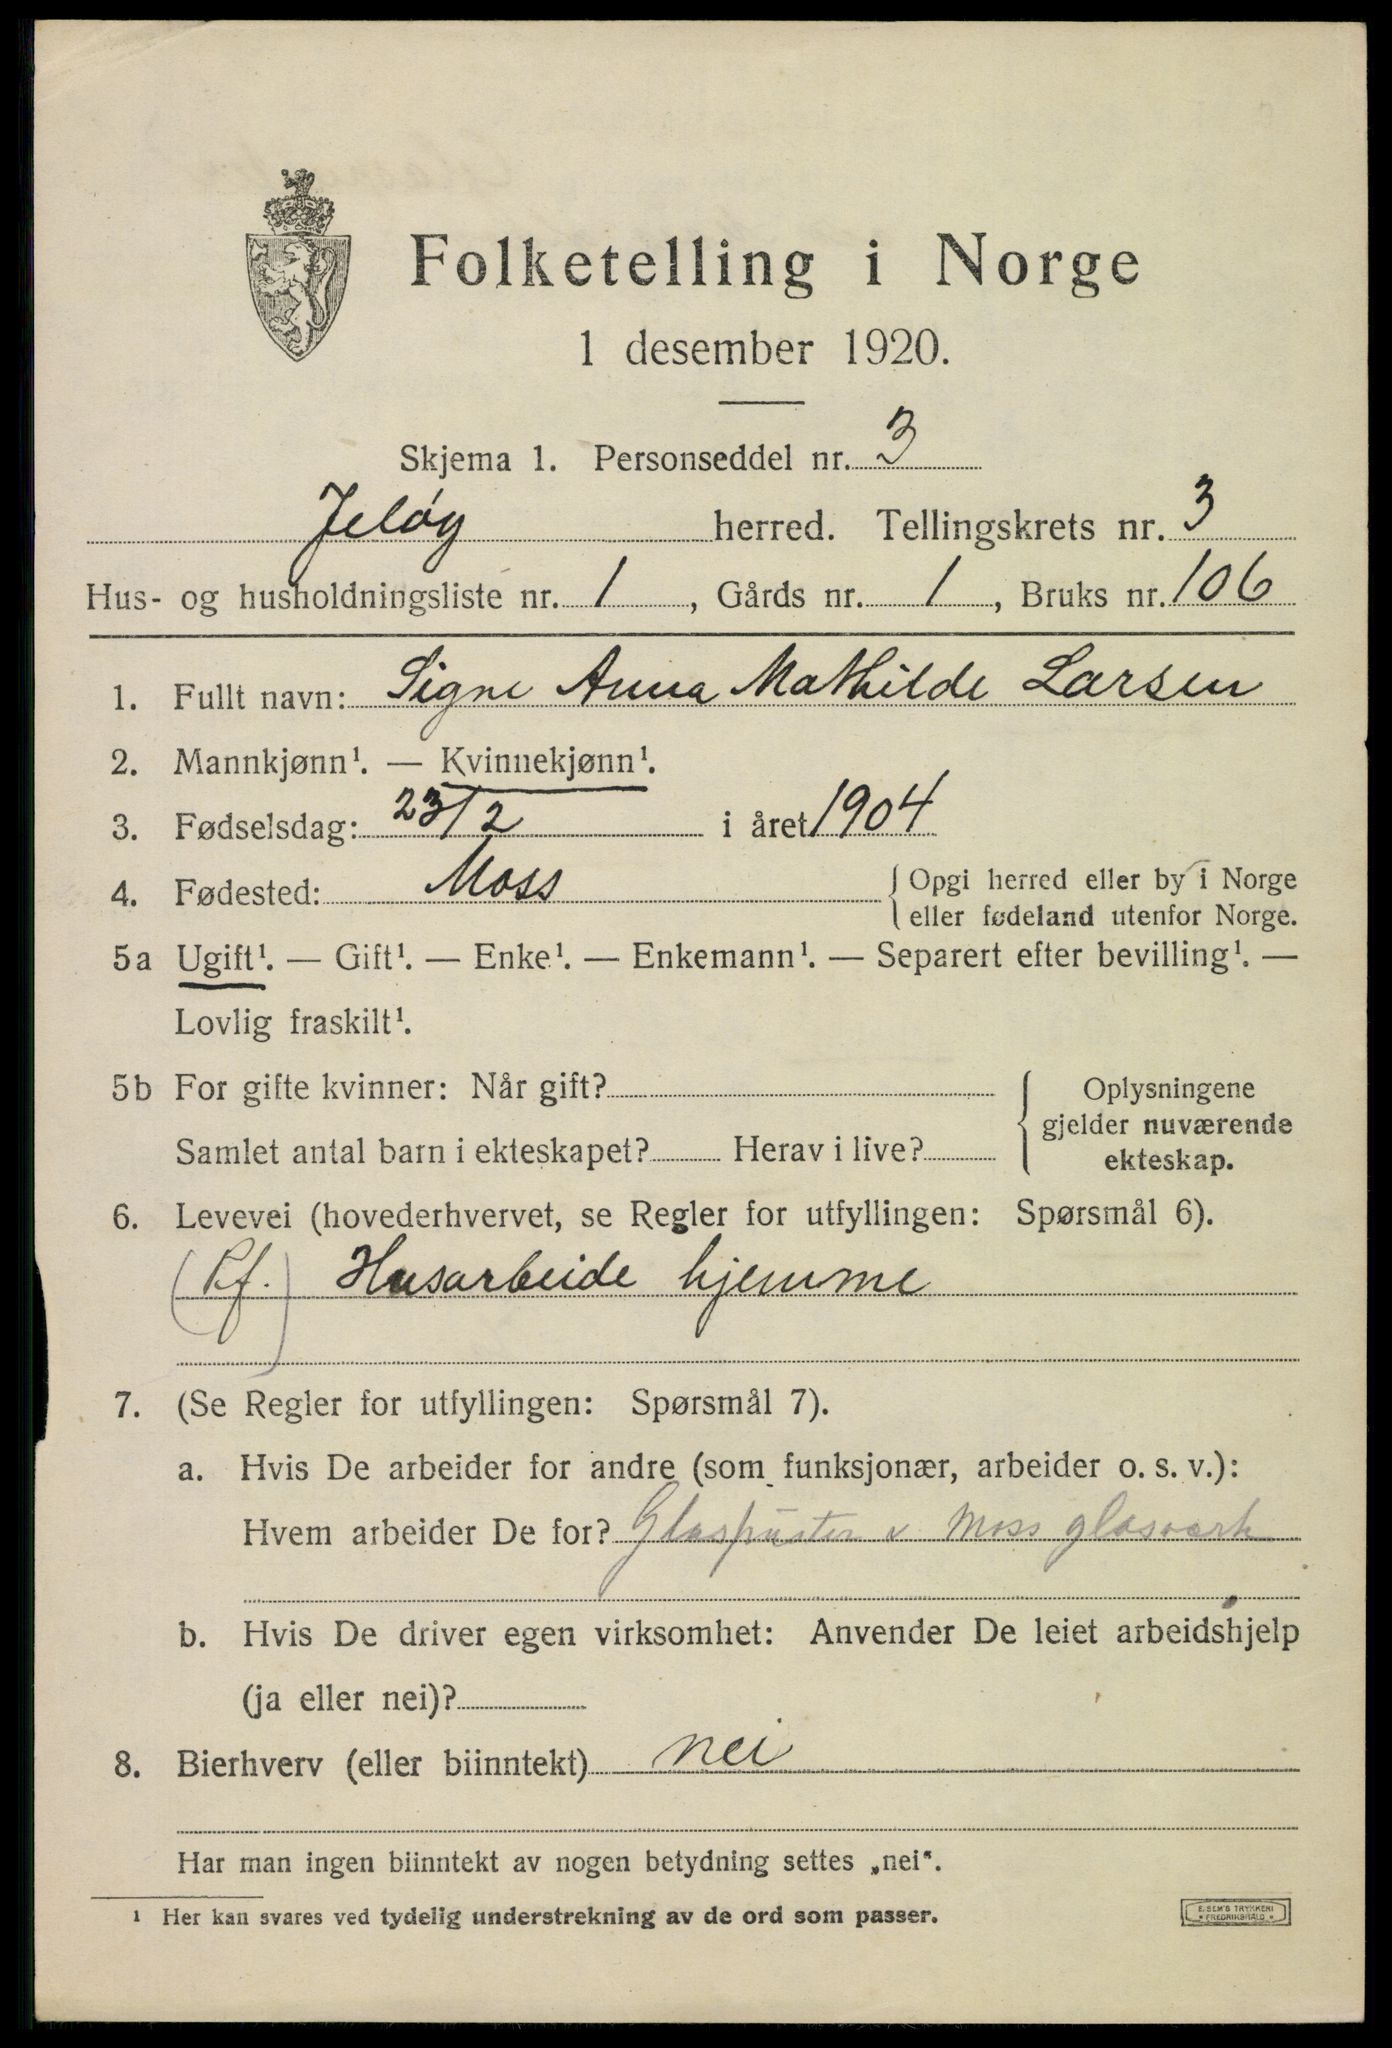 Folketelling i Norge
1 desember 1920.
Skjema 1. Personseddel nr. 3
Jeløy herred. Tellingskrets nr. 3
Hus- og husholdningsliste nr. 1, Gårds nr. 1, Bruks nr. 106
1. Fullt navn: Signe Anna Mathilde Larsen
2. Mannkjønn¹. — Kvinnekjønn¹.
3. Fødselsdag: 23/2 i året 1904
4. Fødested: Moss { Opgi herred eller by i Norge
eller fødeland utenfor Norge.
5a Ugift¹. — Gift¹. — Enke¹. — Enkemann¹. — Separert efter bevilling¹. —
Lovlig fraskilt¹.
5b For gifte kvinner: Når gift?
Samlet antal barn i ekteskapet? Herav i live?
{ Oplysningene
gjelder nuværende
ekteskap.
6. Levevei (hovederhvervet, se Regler for utfyllingen: Spørsmål 6).
Husarbeide hjemme
7. (Se Regler for utfyllingen: Spørsmål 7).
a. Hvis De arbeider for andre (som funksjonær, arbeider o. s. v.):
Hvem arbeider De for? Glaspuster v Moss glasværk
b. Hvis De driver egen virksomhet: Anvender De leiet arbeidshjelp
(ja eller nei)?
8. Bierhverv (eller biinntekt) nei
Har man ingen biinntekt av nogen betydning settes „nei“.
¹ Her kan svares ved tydelig understrekning av de ord som passer.
E. SEM'S TRYKKERI
• FREDRIKSHALD •